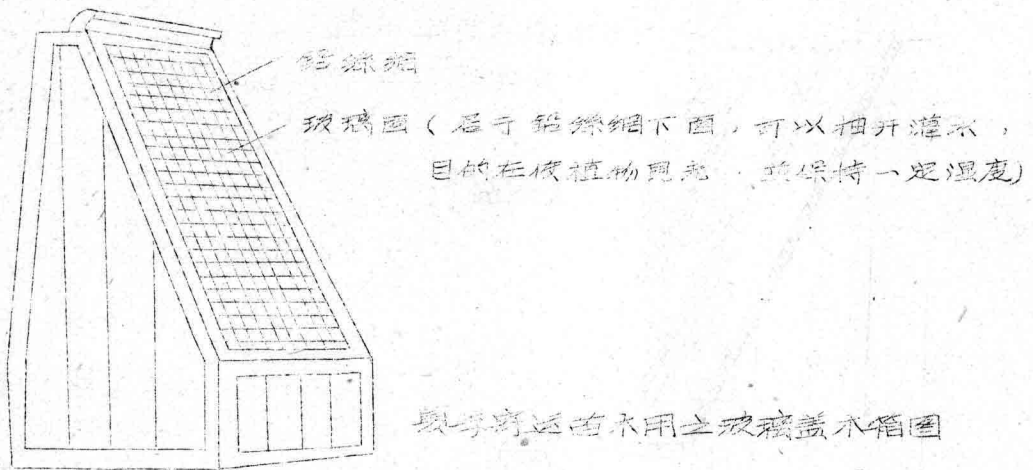 鉛絲網
玻璃面（居于鉛絲網下面，可以抽开灌水，
目的在使植物見光 並保持一定湿度）
寄运苗木用之玻璃盖木箱圖